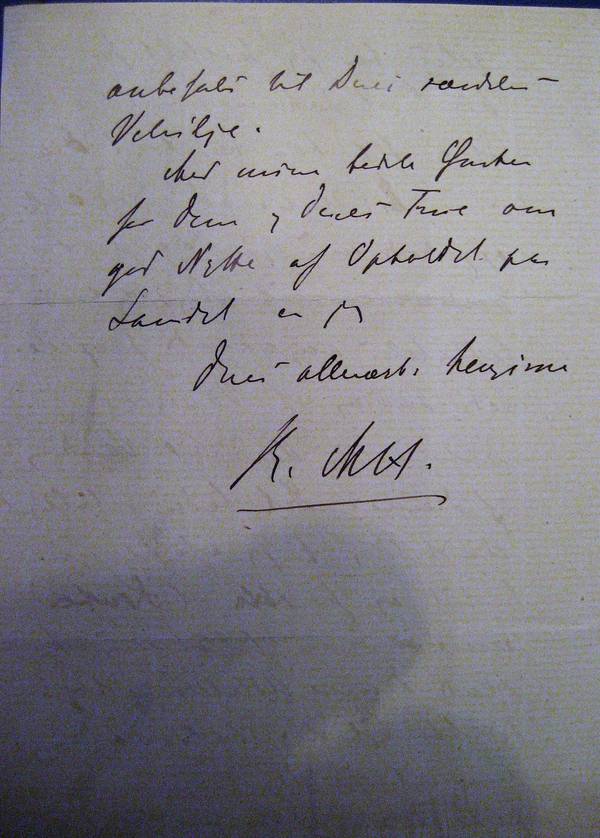 anbefalet til Deres særdeles
Velvilje.
Med mine bedste Ønsker
for Dem og Deres Frue om
god Nytte af Opholdet paa
Landet er jeg
Deres allerærb. hengivne
K.